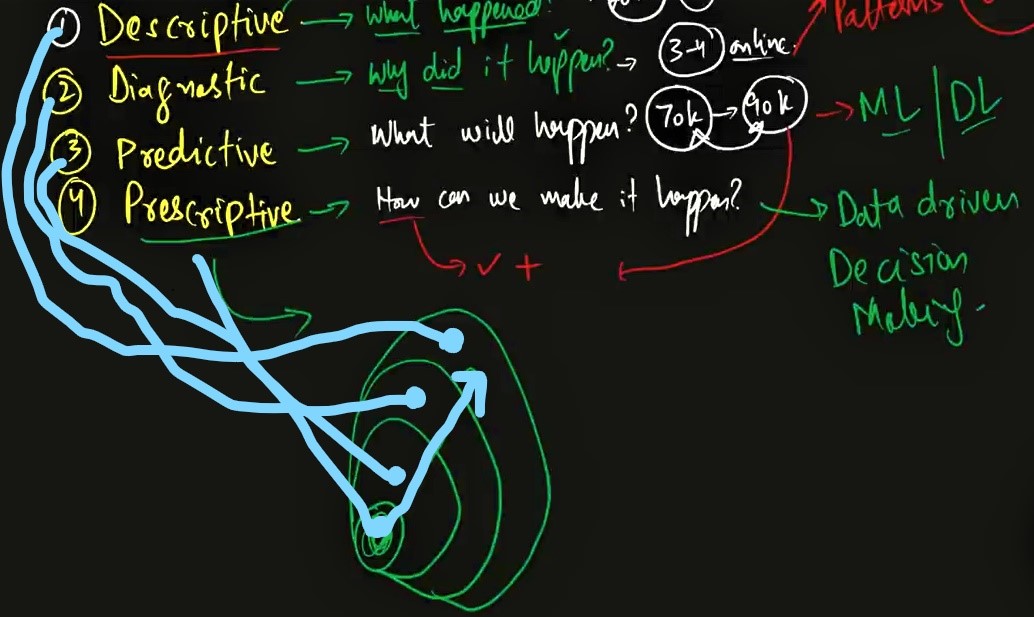 ① Descriptive → what happened?
Patterns
② Diagnostic → why did it happen? → 3-4 online.
③ Predictive → What will happen? 70k → 90k → ML | DL
④ Prescriptive → How can we make it happen? → Data driven
Decision
Making.
✓ +